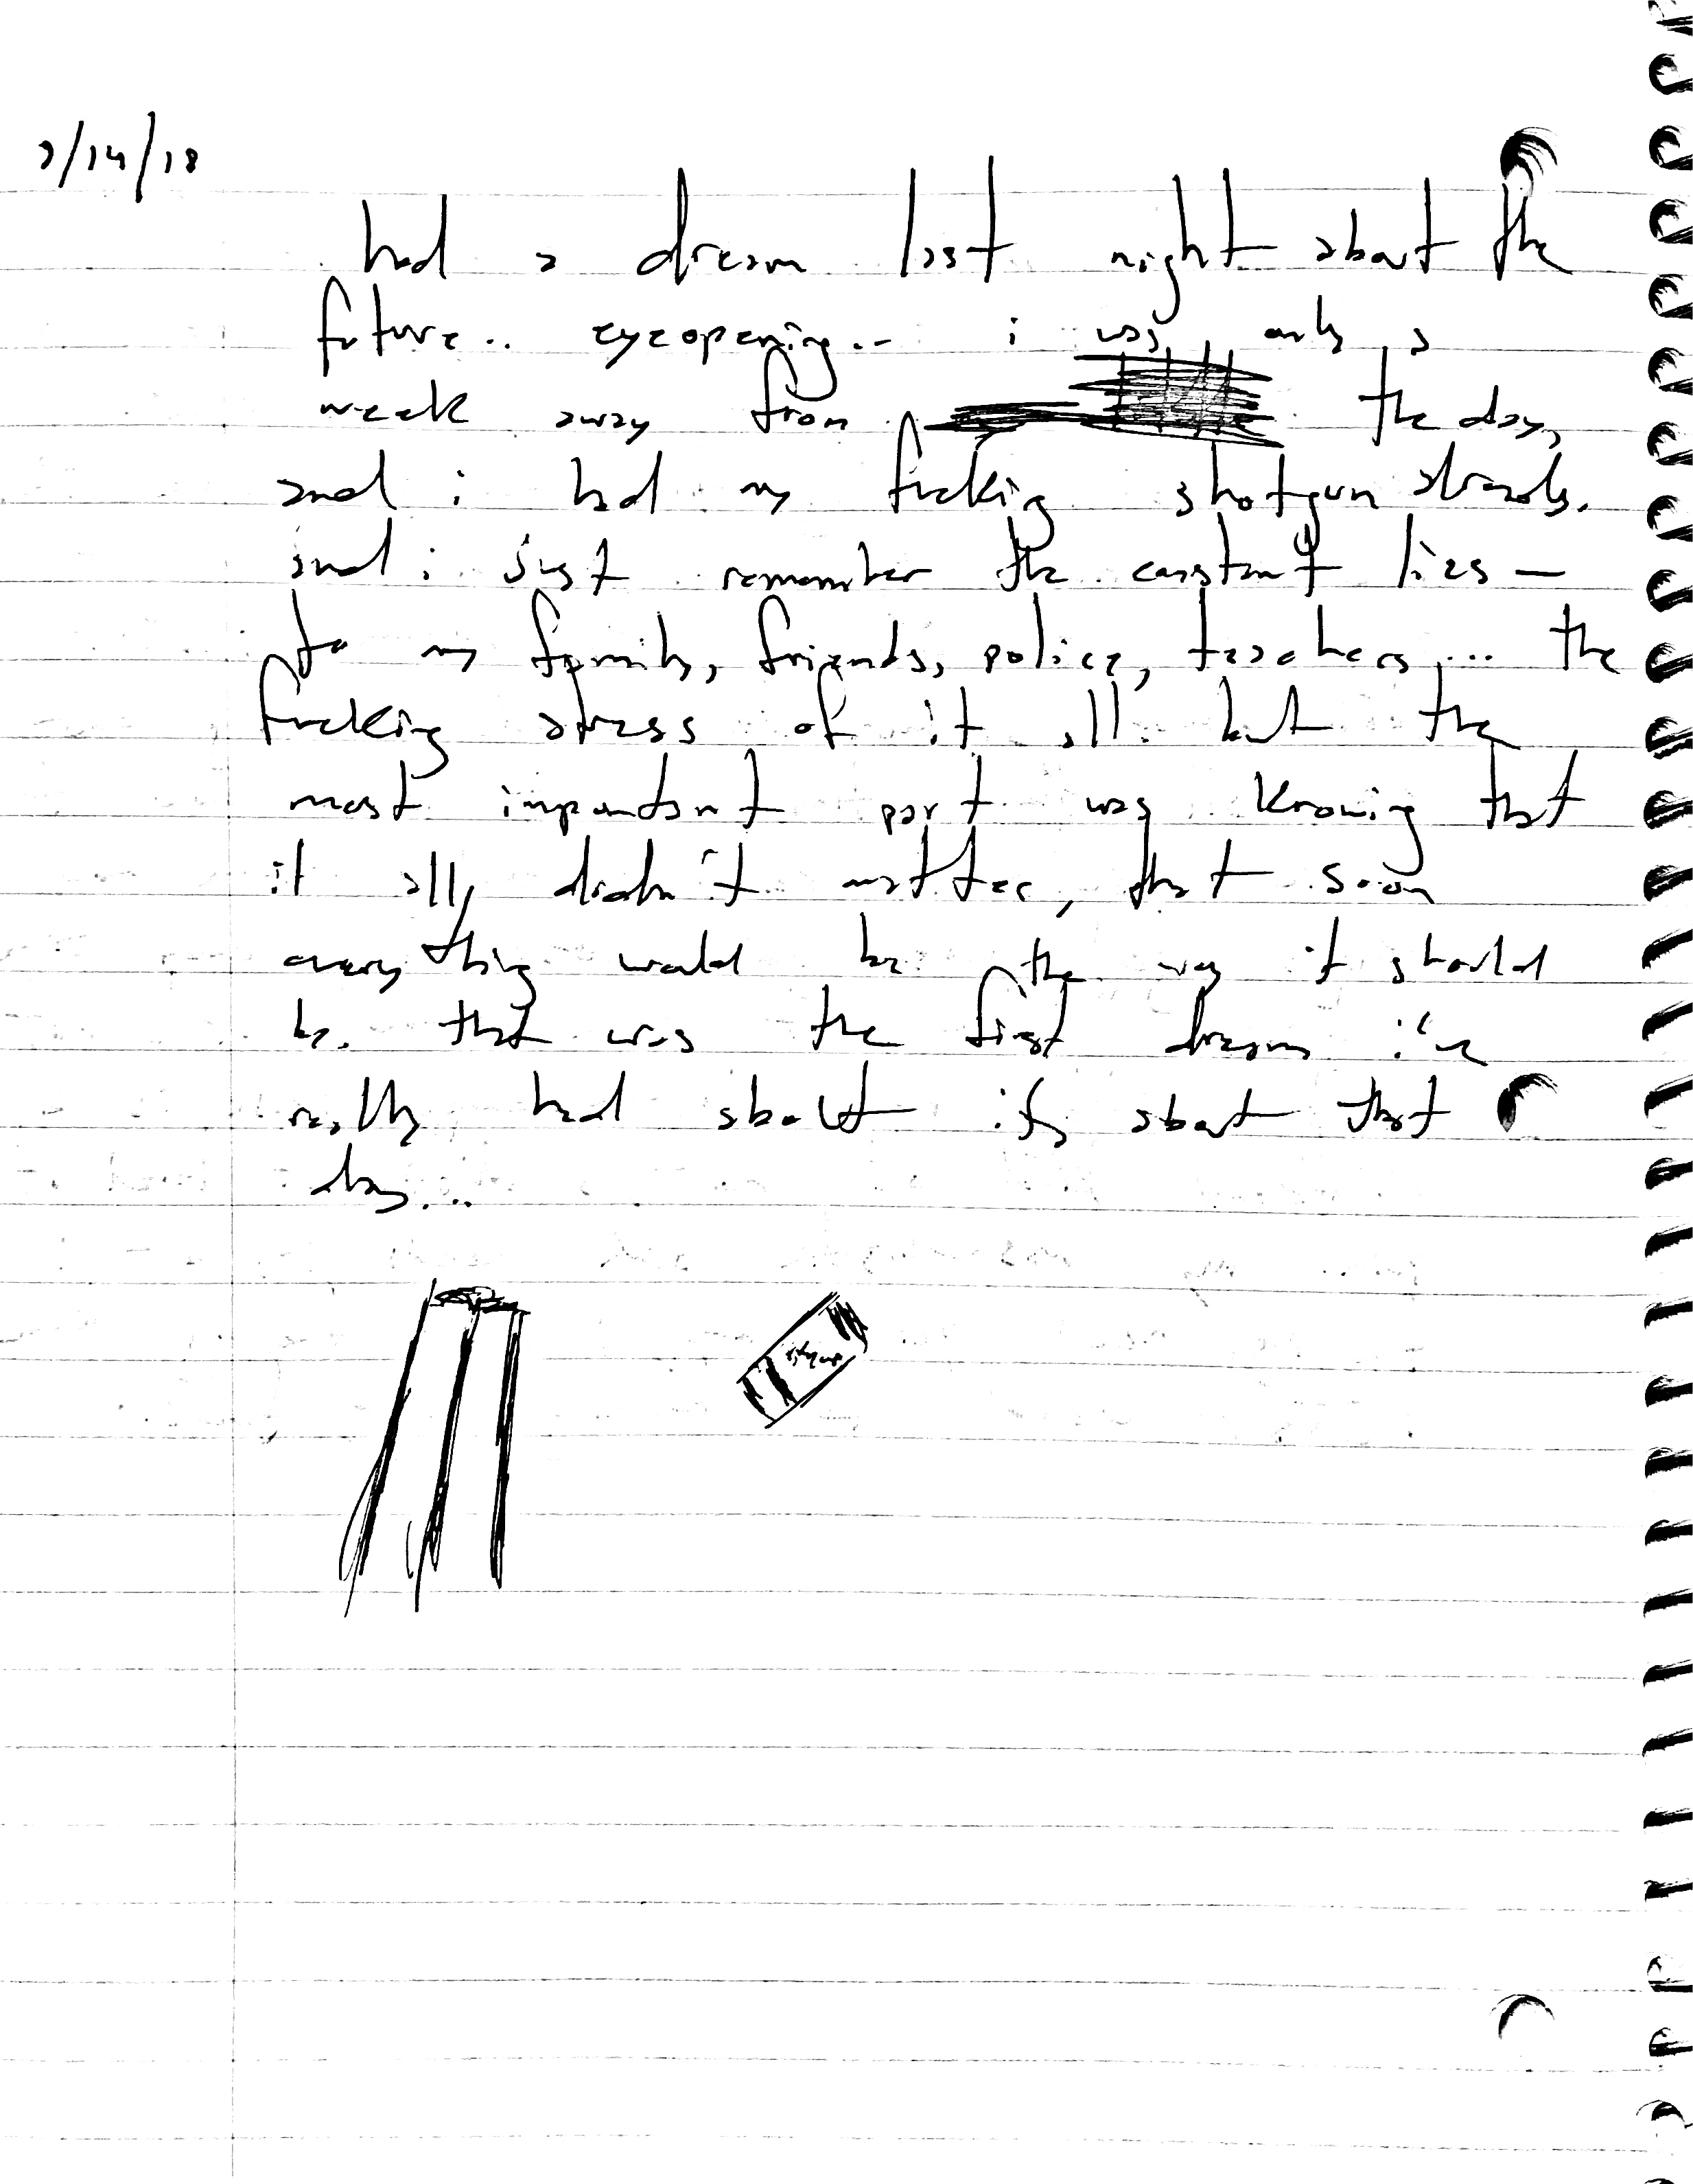 2/14/18
had a dream last night about the
future.. eyeopening.. i was only a
week away from the day,
and i had my fucking shotgun already.
and i just remember the constant lies —
to my family, friends, police, teachers... the
fucking stress of it all. but the
most important part was knowing that
it all didn't matter, that soon
everything would be the way it should
be. that was the first dream i've
really had about it, about that
day...